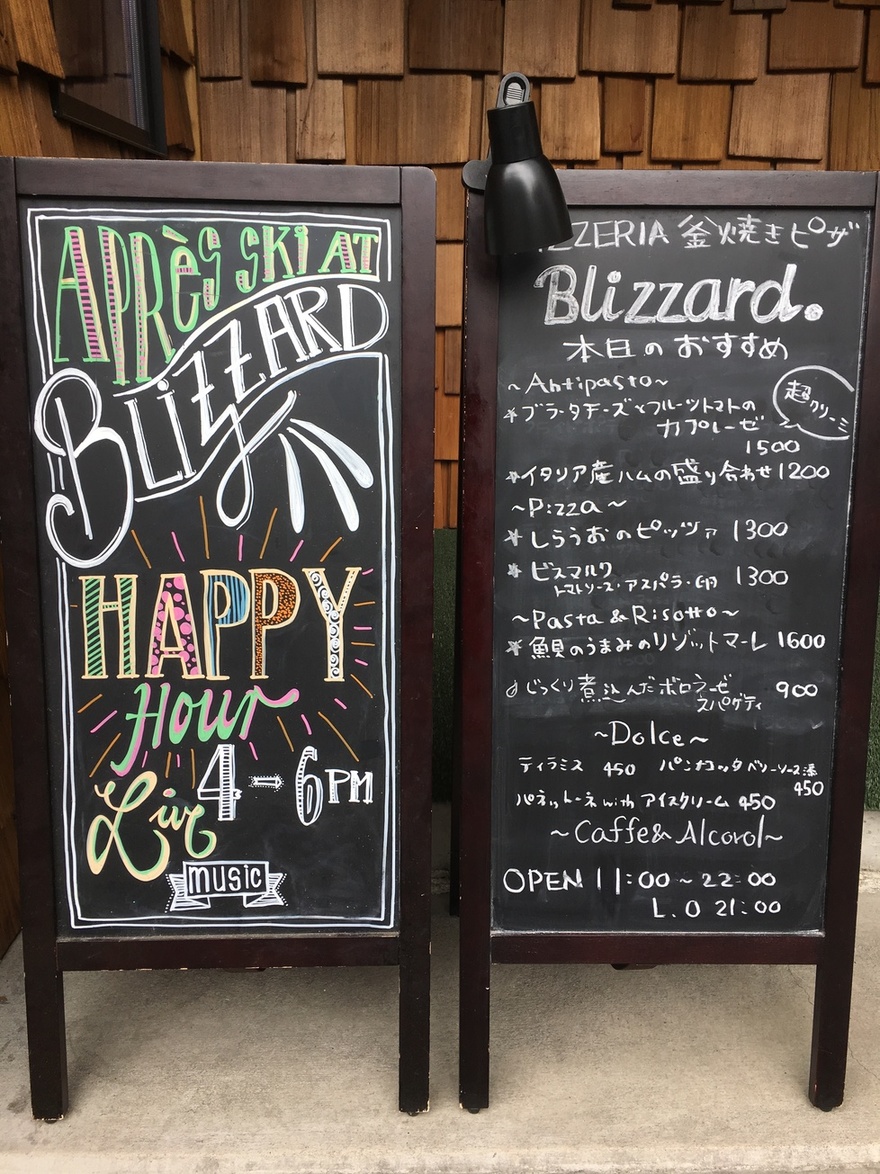 APRÈS SKI AT
BLIZZARD
HAPPY
Hour
4-6PM
Live
music
ZZERIA 釜焼きピザ
Blizzard.
本日のおすすめ
~Antipasto~
ブラータチーズとフルーツトマトの
カプレーゼ
超クリーミー
1500
イタリア産ハムの盛り合わせ 1200
~Pizza~
しらうおのピッツァ 1300
ビスマルク
トマトソース・アスパラ・卵 1300
~Pasta & Risotto~
魚貝のうまみのリゾットマーレ 1600
じっくり煮込んだボロネーゼ
スパゲティ 900
~Dolce~
ティラミス 450 パンナコッタベリーソース添
450
パネットーネwithアイスクリーム 450
~Caffe & Alcorol~
OPEN 11:00~22:00
L.O 21:00